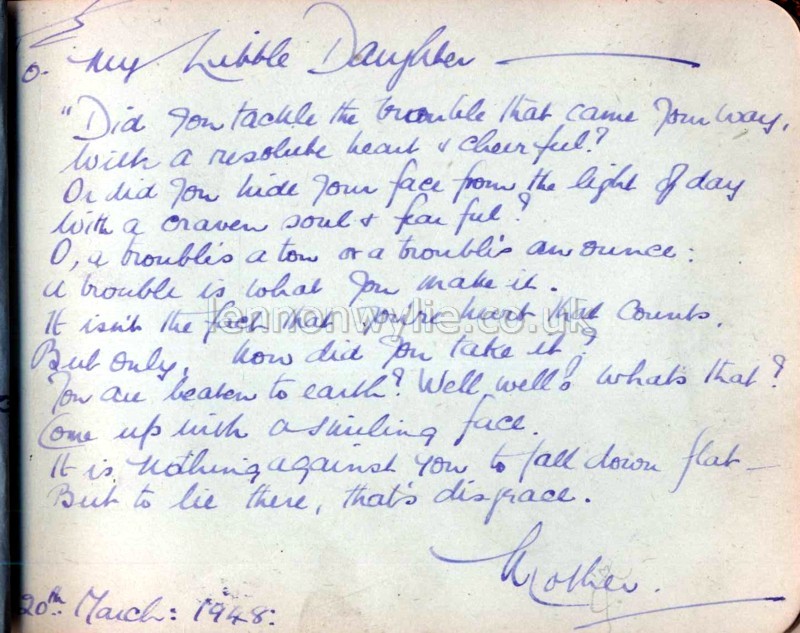 To My Little Daughter
"Did you tackle the trouble that came your way,
With a resolute heart & cheerful?
Or did you hide your face from the light of day
With a craven soul & fearful?
O, a trouble's a ton or a trouble's an ounce:
A trouble is what you make it.
It isn't the fact that you're hurt that counts.
But only, how did you take it?
You are beaten to earth? Well, well! What's that?
Come up with a smiling face.
It is nothing against you to fall down flat –
But to lie there, that's disgrace.
Mother.
20th. March: 1948:
lennonwylie.co.uk